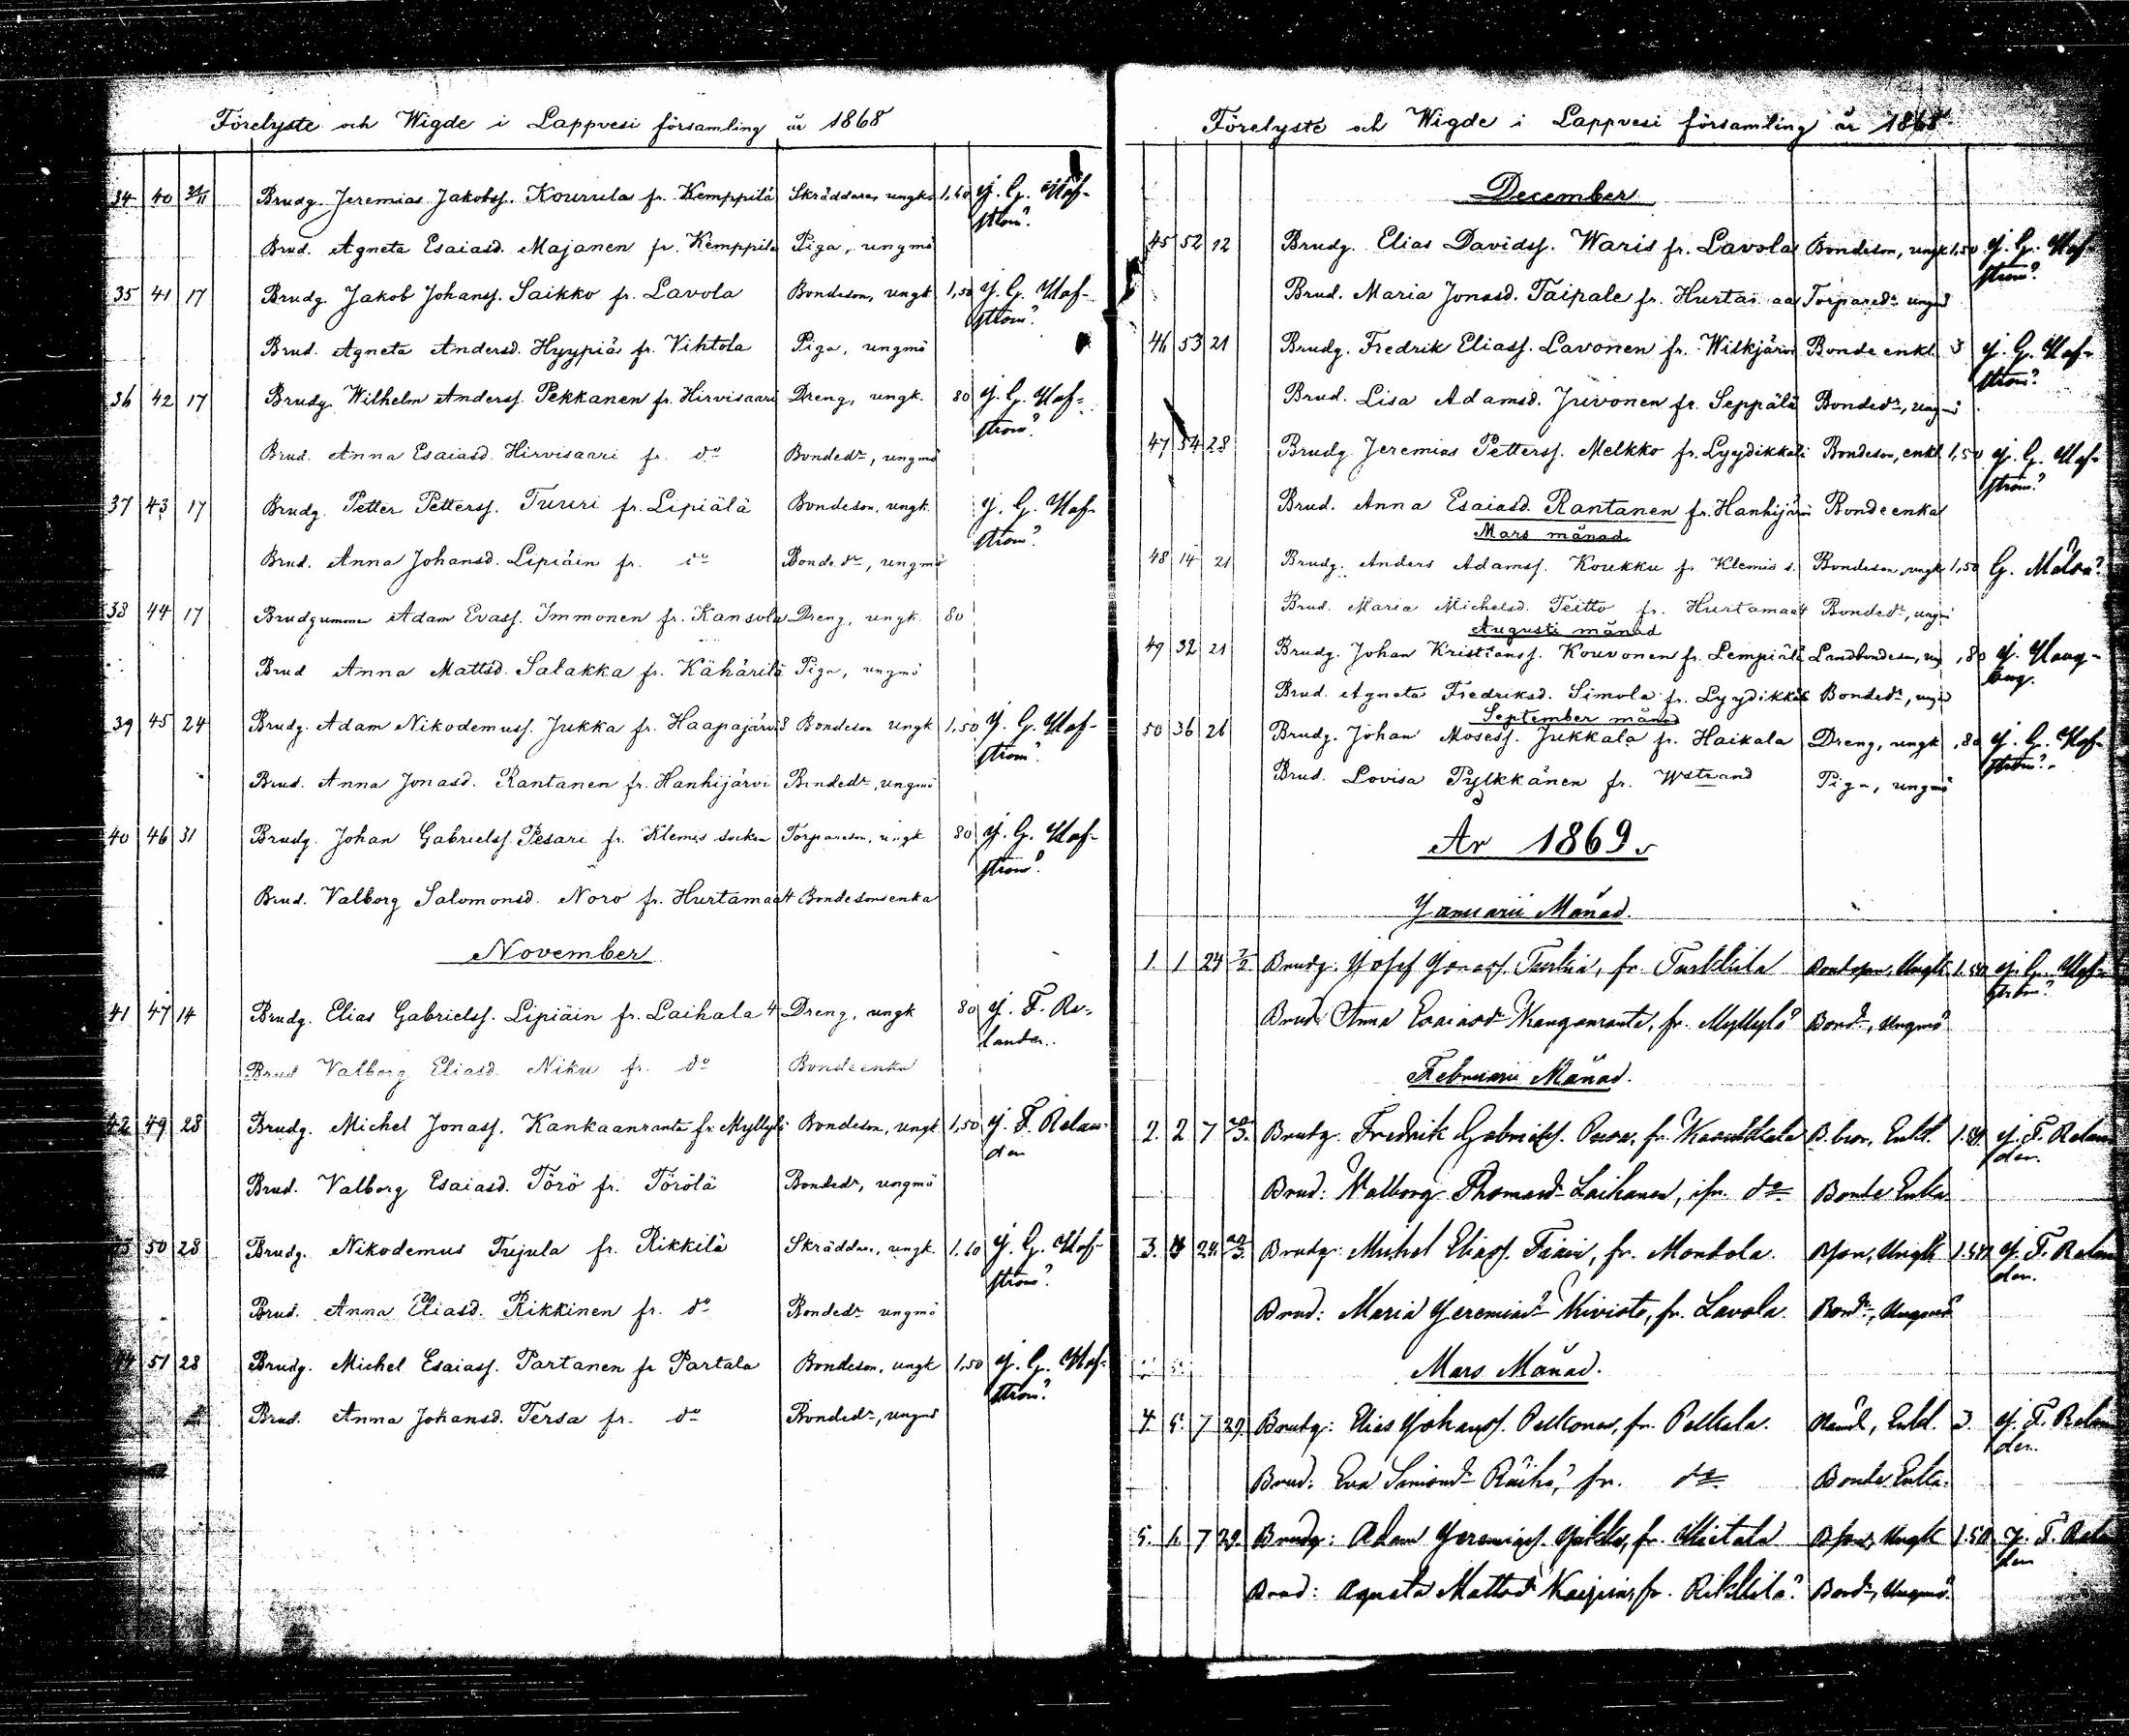 Förelyste och Wigde i Lappvesi församling år 1868
34 40 Brudg. Jeremias Jakobss. Kourula fr. Kemppilä Skräddare, ungk. 1,60 J. G. Hof-
ström.
Brud. Agneta Esaiasd. Majanen fr. Kemppilä Piga, ungmö
35 41 17 Brudg. Jakob Johanss. Saikko fr. Lavola Bondeson, ungk 1,50 J. G. Hof-
ström.
Brud. Agneta Andersd. Hyypiä fr. Vihtola Piga, ungmö
36 42 17 Brudg. Wilhelm Anderss. Pekkanen fr. Hirvisaari Dreng, ungk. 80 J. G. Hof-
ström.
Brud. Anna Esaiasd. Hirvisaari fr. do Bondedr, ungmö
37 43 17 Brudg. Petter Petterss. Tuuri fr. Lipiälä Bondeson, ungk. J. G. Hof-
ström.
Brud. Anna Johansd. Lipiäin fr. do Bonde dr, ungmö
38 44 17 Brudgumme Adam Evass. Immonen fr. Kansola Dreng, ungk. 80
Brud Anna Mattsd. Salakka fr. Kähärilä Piga, ungmö
39 45 24 Brudg. Adam Nikodemuss. Jukka fr. Haapajärvi 8 Bondeson ungk 1,50 J. G. Hof-
ström.
Brud. Anna Jonasd. Rantanen fr. Hanhijärvi Bondedr, ungmö
40 46 31 Brudg. Johan Gabrielss. Pesari fr. Klemis socken Torpareson, ungk 80 J. G. Hof-
ström.
Brud. Valborg Salomonsd. Noro fr. Hurtamaa 4 Bondesonsenka
November
41 47 14 Brudg. Elias Gabrielss. Lipiäin fr. Laihala 4 Dreng, ungk 80 J. F. Re-
lander.
Brud Valborg Eliasd. Niku fr. do Bondeenka
42 49 28 Brudg. Michel Jonass. Kankaanranta fr. Myllylä Bondeson, ungk 1,50 J. F. Relan-
der
Brud. Valborg Esaiasd. Törö fr. Törölä Bondedr, ungmö
43 50 28 Brudg. Nikodemus Tujula fr. Rikkilä Skräddare, ungk. 1.60 J. G. Hof-
ström.
Brud. Anna Eliasd. Rikkinen fr. do Bondedr ungmö
44 51 28 Brudg. Michel Esaiass. Partanen fr Partala Bondeson, ungk 1,50 J. G. Hof-
ström.
Brud. Anna Johansd. Tersa fr. do Bondedr, ungmö
Förelyste och Wigde i Lappvesi församling år 1868
December
45 52 12 Brudg. Elias Davidss. Waris fr. Lavola Bondeson, ungk 1,50 J. G. Hof-
ström.
Brud. Maria Jonasd. Taipale fr. Torparedr ungmö
46 53 21 Brudg. Fredrik Eliass. Lavonen fr. Wilkjärvi Bonde enkl. 3 J. G. Hof-
ström.
Brud. Lisa Adamsd. Juvonen fr. Seppälä Bondedr, ungmö
47 54 28 Brudg Jeremias Petterss. Melkko fr. Lyydikkälä Bondeson, enkl 1,50 J. G. Hof-
ström.
Brud. Anna Esaiasd. Rantanen fr. Hanhijärvi Bondeenka
Mars månad
48 14 21 Brudg. Anders Adamss. Koukku fr. Klemis s. Bondeson, ungk 1,50 G.
Brud. Maria Michelsd. Teitto fr. Hurtamaa 4 Bondedr, ungmö
Augusti månad
49 32 21 Brudg. Johan Kristianss. Kouvonen fr. Lempiälä Landbondeson, ung ,80 J. Haag-
berg.
Brud. Agneta Fredriksd. Simola fr. Lyydikkälä Bondedr, ungmö
September månad
50 36 26 Brudg. Johan Mosess. Jukkala fr. Haikala Dreng, ungk ,80 J. G. Hof-
ström.
Brud. Lovisa Pylkkänen fr. Wstrand Piga, ungmö
År 1869.
Januarii Månad.
1. 1 24 Brudg: Josef Jonass. Turkia, fr. Turkkila Bondeson, Ungk 1.50 J. G. Hof-
ström.
Brud: Anna Esaiasdr Kanganranta, fr. Myllylä Bondr, Ungmö
Februarii Månad.
2. 2 7 Brudg: Fredrik Gabrielss. fr. B. bror, Enkl. 1.50 J. F. Relan-
der.
Brud: Walborg Thomasdr Laihanen, ifr. do Bonde Enka
3. 24 Brudg: Michel Eliass. fr. Montola. Bson, Ungk 1.50 J. F. Relan
der.
Brud: Maria Jeremiasdr Kivioto, fr. Lavola. Bondr, Ungmö
Mars Månad.
4. 5. 7 29. Brudg: Elias Johanss. Pulkonen, fr. Pulkala. Enkl. 3. J. F. Relan
der.
Brud: Eva Simonsdr Räihä, fr. do Bonde Enka.
5. 6. 7 29. Brudg: Adam Jeremiass. fr. Bson, Ungk 1.50. J. F. Rela
der
Brud: Agneta Mattsdr fr. Rikkilä. Bondr, Ungmö.